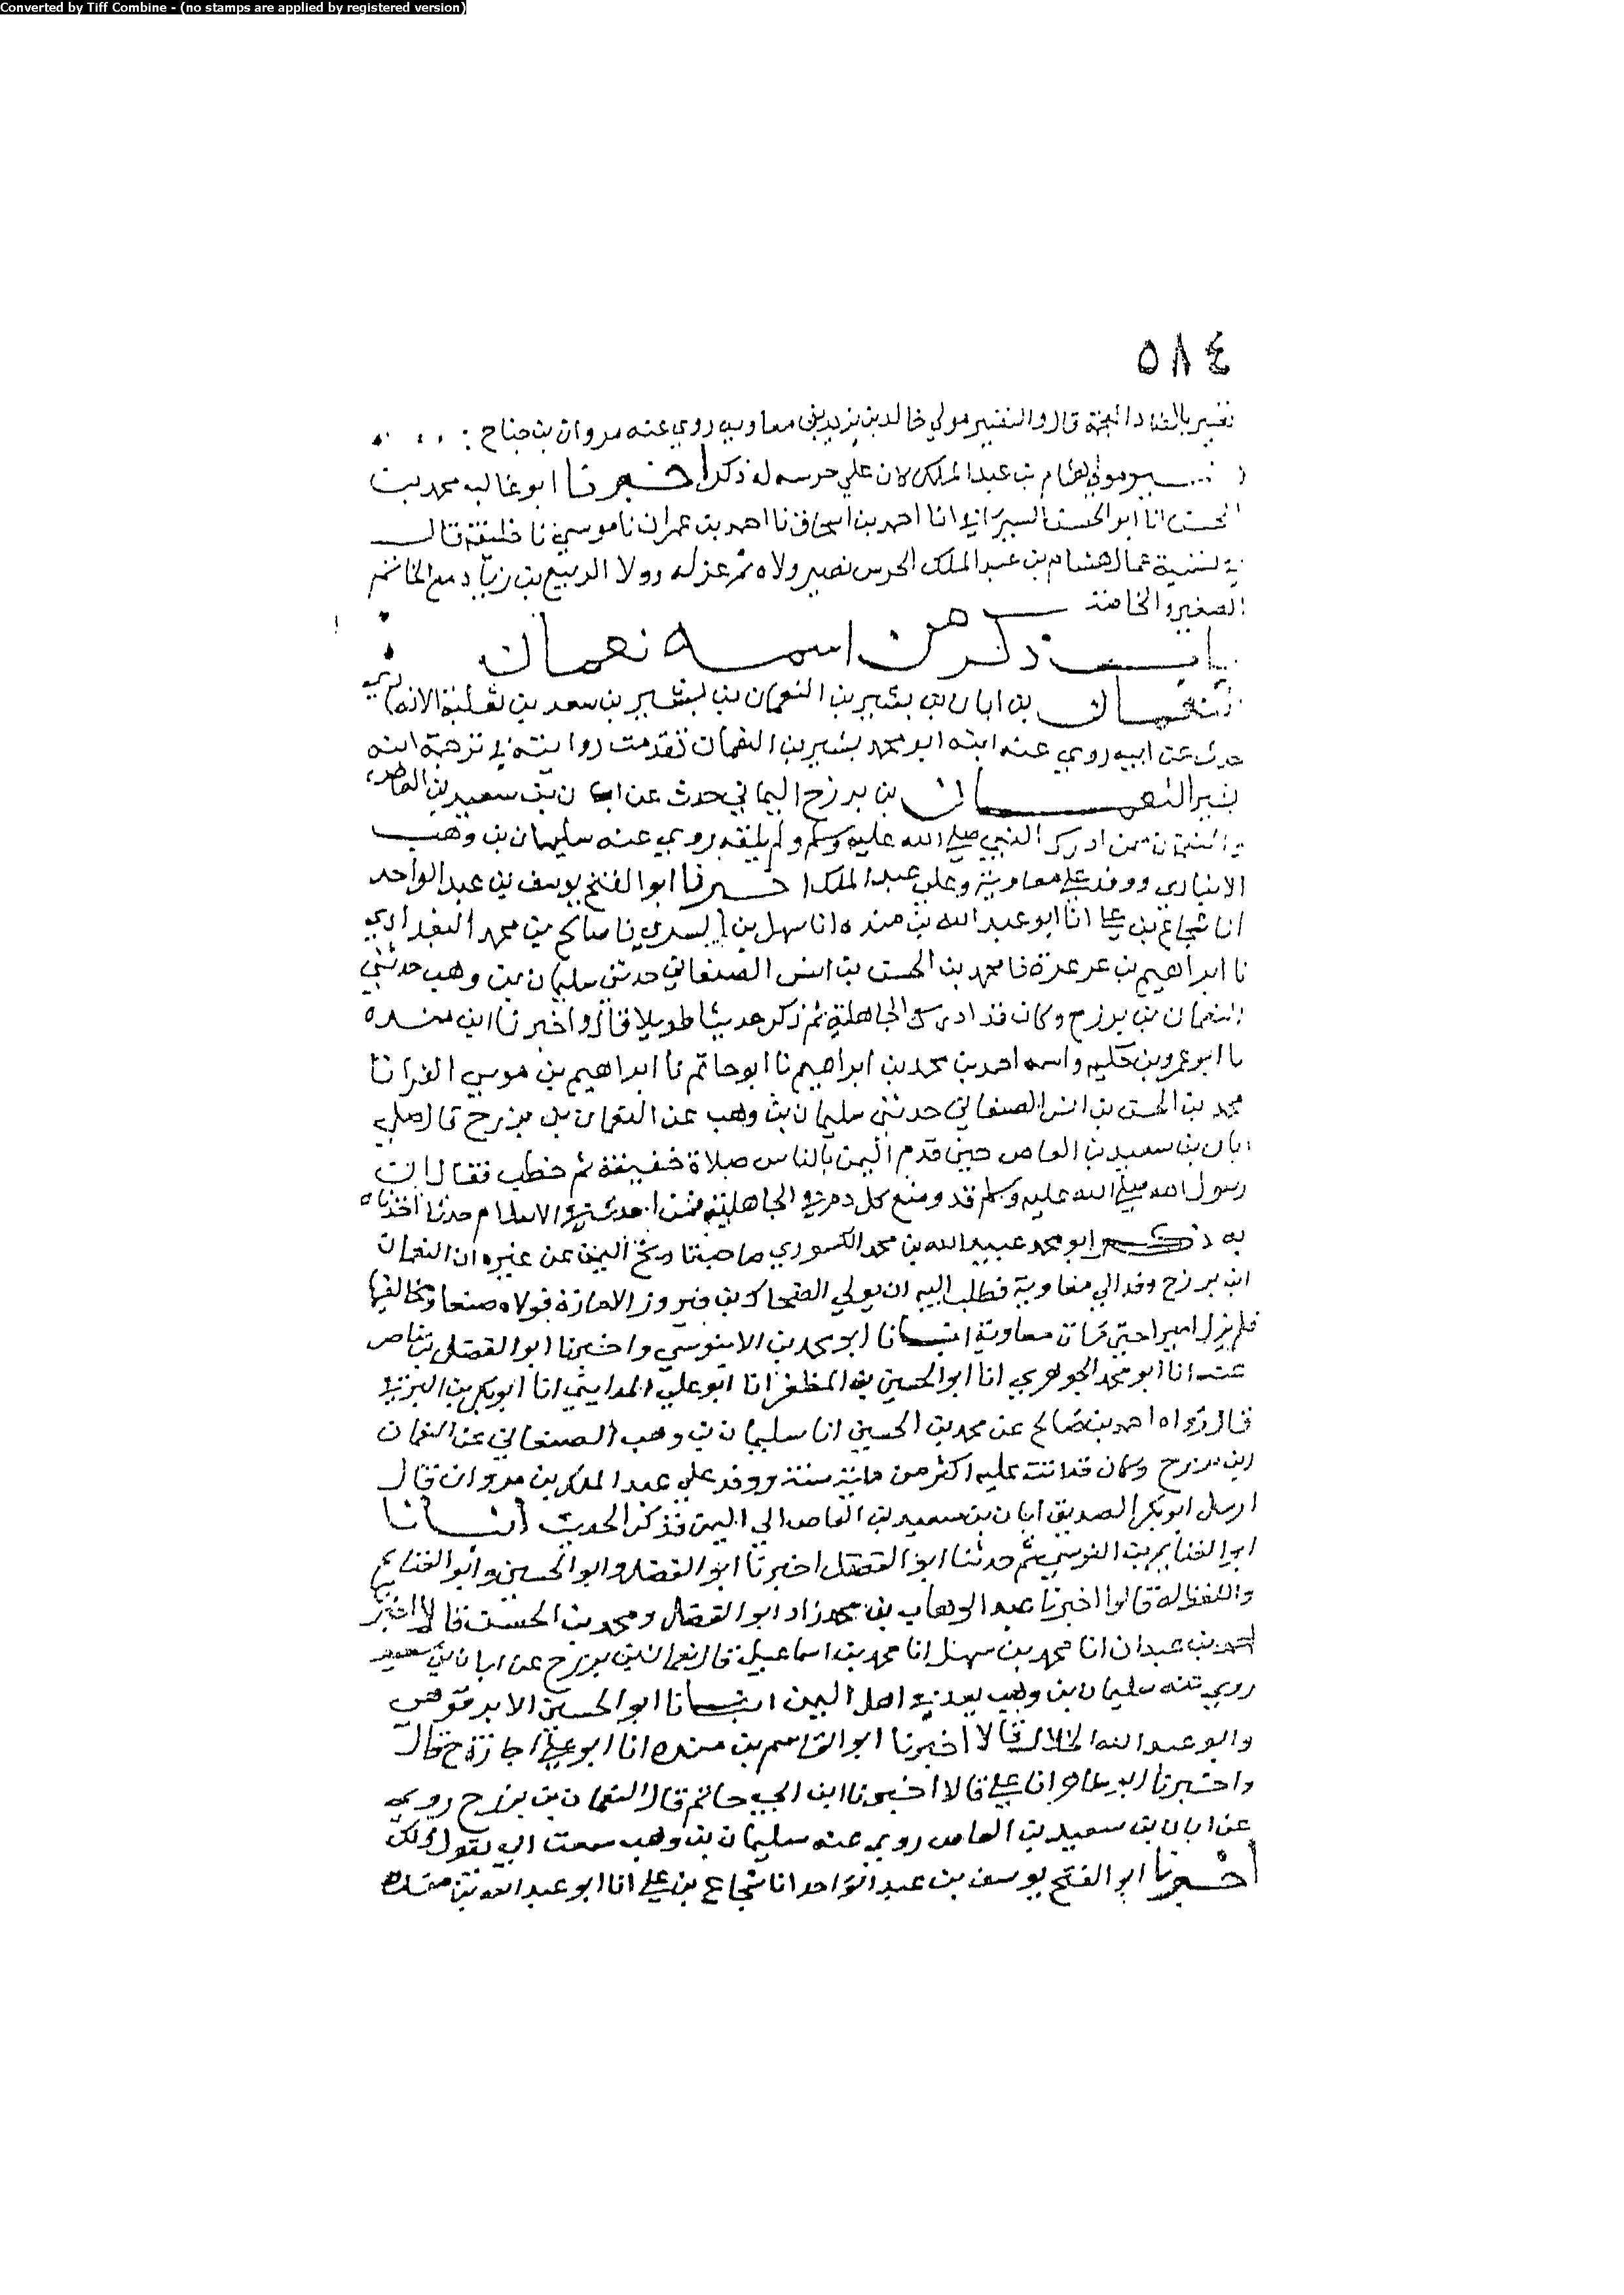 Converted by Tiff Combine - (no stamps are applied by registered version)
٥٨٤
نضير بالضاد المعجمة قال والنضير مولي خالد بن يزيد بن معاوية روي عنه مروان بن جناح
مولي هشام بن عبد الملك كان علي حرسه له ذكر اخبرنا ابو غالب محمد بن
الحسن انا ابو الحسن السيرافي انا احمد بن اسحاق نا احمد بن عمران نا موسي نا خليفة قال
في تسمية عمال هشام بن عبد الملك الحرس نصير ولاه ثم عزله وولا الربيع بن زياد مع الخاتم
الصغير والخاصة
باب ذكر من اسمه نعمان
نعمان بن ابان بن بشير بن النعمان بن بشير بن سعد بن ثعلبة الانصاري
حدث عن ابيه روي عنه ابنه ابو محمد بشير بن النعمان تقدمت روايته في ترجمة ابنه
بشير النعمان بن برزح اليماني حدث عن ابان بن سعيد بن العاص
ممن ادرك النبي صلي الله عليه وسلم ولم يلقه روي عنه سليمان بن وهب
الانباري ووفد علي معاوية وعلي عبد الملك اخبرنا ابو الفتح يوسف بن عبد الواحد
انا شجاع بن علي انا ابو عبد الله بن منده انا سهل بن السري نا صالح بن محمد البغدادي
نا ابراهيم بن عرعرة نا محمد بن الحسن بن انس الصنعاني حدثني سليمان بن وهب حدثني
النعمان بن برزح وكان قد ادرك الجاهلية ثم ذكر حديثا طويلا قال واخبرنا ابن منده
نا ابو عمرو بن حكيم واسمه احمد بن محمد بن ابراهيم نا ابو حاتم نا ابراهيم بن موسي الفرا نا
محمد بن الحسن بن انس الصنعاني حدثني سليمان بن وهب عن النعمان بن برزح قال صلي
ابان بن سعيد بن العاص حين قدم اليمن بالناس صلاة خفيفة ثم خطب فقال ان
رسول الله صلي الله عليه وسلم قد وضع كل دم في الجاهلية فمن احدث في الاسلام حدثا اخذناه
به ذكر ابو محمد عبيد الله بن محمد الكشوري صاحب تاريخ اليمن عن غيره ان النعمان
ابن برزح وفد الي معاوية فطلب اليه ان يولي الضحاك بن فيروز الامارة فولاه صنعا ومخاليفها
فلم يزل اميرا حتي مات معاوية انبانا ابو محمد بن الابنوسي واخبرنا ابو الفضل بن ناصر
عنه انا ابو محمد الجوهري انا ابو الحسين بن المظفر انا ابو علي المدايني انا ابو بكر بن البرقي
قال رواه احمد بن صالح عن محمد بن الحسين انا سليمان بن وهب الصنعاني عن النعمان
ابن برزح وكان قد اتت عليه اكثر من ماية سنة ووفد علي عبد الملك بن مروان قال
ارسل ابو بكر الصديق ابان بن سعيد بن العاص الي اليمن فذكر الحديث انبانا
ابو الغنايم بن النرسي ثم حدثنا ابو الفضل اخبرنا ابو الفضل وابو الحسين وابو الغنايم
واللفظ له قالوا اخبرنا عبد الوهاب بن محمد زاد ابو الفضل ومحمد بن الحسن قالا اخبرنا
احمد بن عبدان انا محمد بن سهل انا محمد بن اسماعيل قال نعمان بن برزح عن ابان بن سعيد
روي عنه سليمان بن وهب يعد في اهل اليمن انبانا ابو الحسين الابرقوهي
وابو عبد الله الخلال قالا اخبرنا ابو القاسم بن منده انا ابو علي اجازة ح قال
واخبرنا ابو طاهر انا علي قالا اخبرنا ابن ابي حاتم قال النعمان بن برزح روي
عن ابان بن سعيد بن العاص روي عنه سليمان بن وهب سمعت ابي يقول ذلك
اخبرنا ابو الفتح يوسف بن عبد الواحد انا شجاع بن علي انا ابو عبد الله بن منده